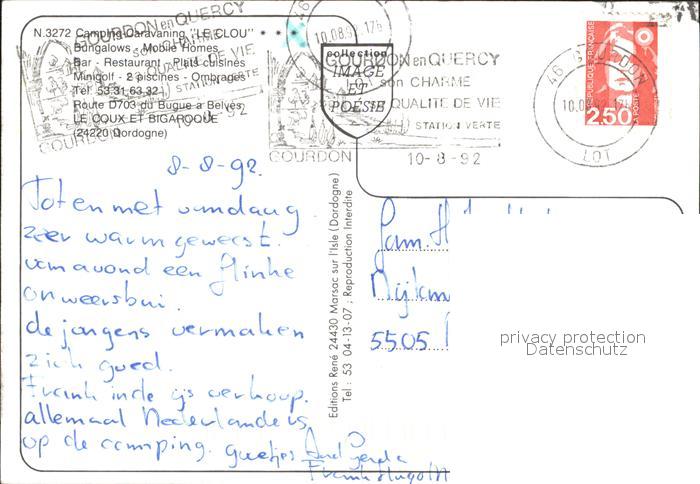 N.3272 Camping-Caravaning "LE CLOU"
Bungalows - Mobil-Homes
Bar - Restaurant - Plats cuisinés
Minigolf - 2 piscines - Ombragés
Tél. 53.31.63.32
Route D703 du Bugue à Belvès
LE COUX ET BIGAROQUE
(24220 Dordogne)
GOURDON en QUERCY
SON CHARME
QUALITE DE VIE
STATION VERTE
GOURDON
collection
IMAGE
ET
POÉSIE
GOURDON en QUERCY
son CHARME
QUALITE DE VIE
STATION VERTE
GOURDON 10-8-92
46 GOURDON
LOT
REPUBLIQUE FRANÇAISE
2,50
8-8-92.
Tot en met vandaag
zeer warm geweest.
vanavond een flinke
onweersbui.
de jongens vermaken
zich goed.
Frank in de ijs verkoop.
allemaal Nederlanders
op de camping. groetjes
Frank Hugo
Editions René 24430 Marsac sur l'Isle (Dordogne)
Tel : 53 04-13-07 ; Reproduction Interdite
Fam.
5505
privacy protection
Datenschutz